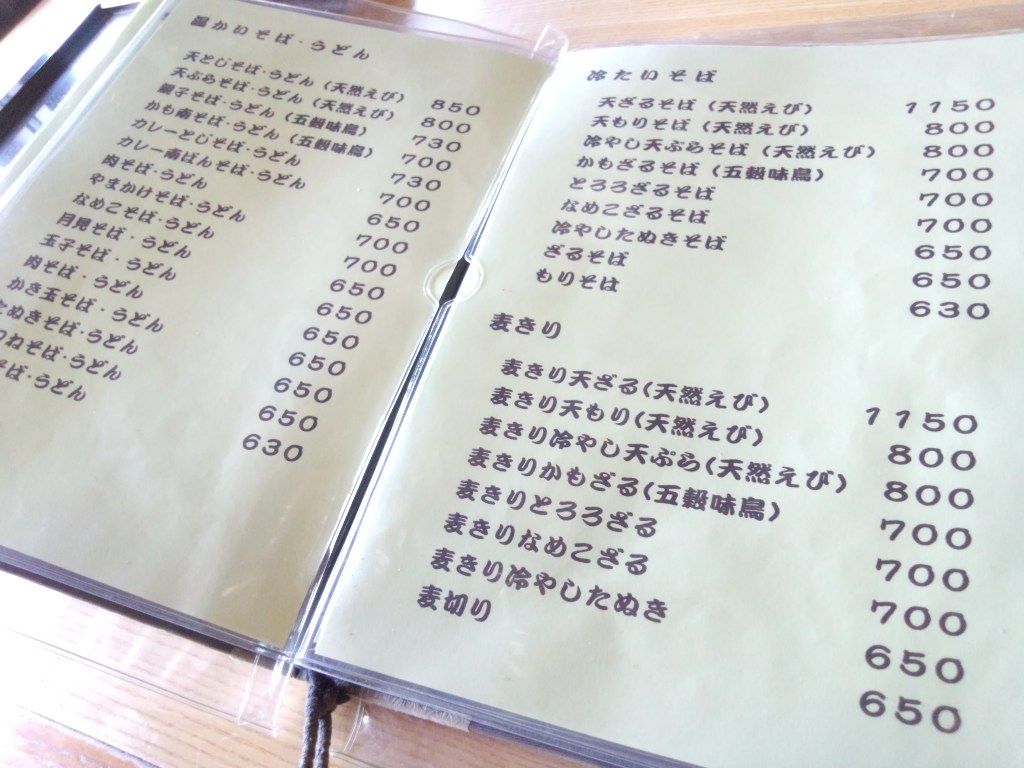 温かいそば・うどん
天とじそば・うどん（天然えび） 850
天ぷらそば・うどん（天然えび） 800
親子そば・うどん（五穀味鳥） 730
かも南そば・うどん（五穀味鳥） 700
カレーとじそば・うどん 730
カレー南ばんそば・うどん 700
肉そば・うどん 650
やまかけそば・うどん 700
なめこそば・うどん 700
月見そば・うどん 650
玉子そば・うどん 650
肉そば・うどん 650
かき玉そば・うどん 650
たぬきそば・うどん 650
つねそば・うどん 650
そば・うどん 630
冷たいそば
天ざるそば（天然えび） 1150
天もりそば（天然えび） 800
冷やし天ぷらそば（天然えび） 800
かもざるそば（五穀味鳥） 700
とろろざるそば 700
なめこざるそば 700
冷やしたぬきそば 650
ざるそば 650
もりそば 630
麦きり
麦きり天ざる（天然えび） 1150
麦きり天もり（天然えび） 800
麦きり冷やし天ぷら（天然えび） 800
麦きりかもざる（五穀味鳥） 700
麦きりとろろざる 700
麦きりなめこざる 700
麦きり冷やしたぬき 650
麦切り 650